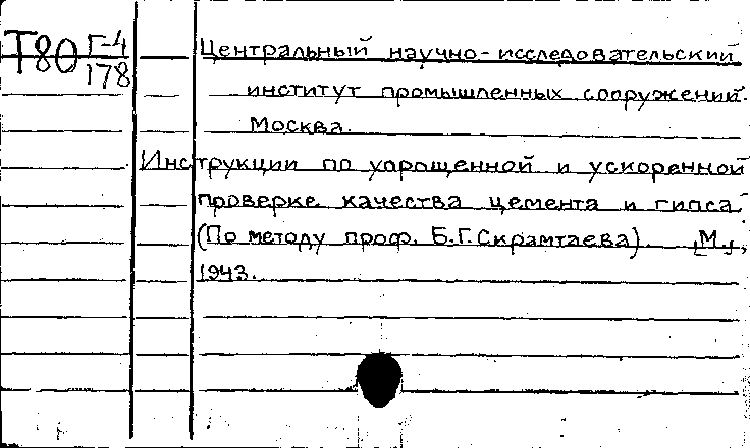 Т80 Г-4
178
Центральный научно-исследовательский
институт промышленных сооружений.
Москва.
Инструкции по упрощенной и ускоренной
проверке качества цемента и гипса
(По методу проф. Б.Г.Скрамтаева). [М.],
1943.